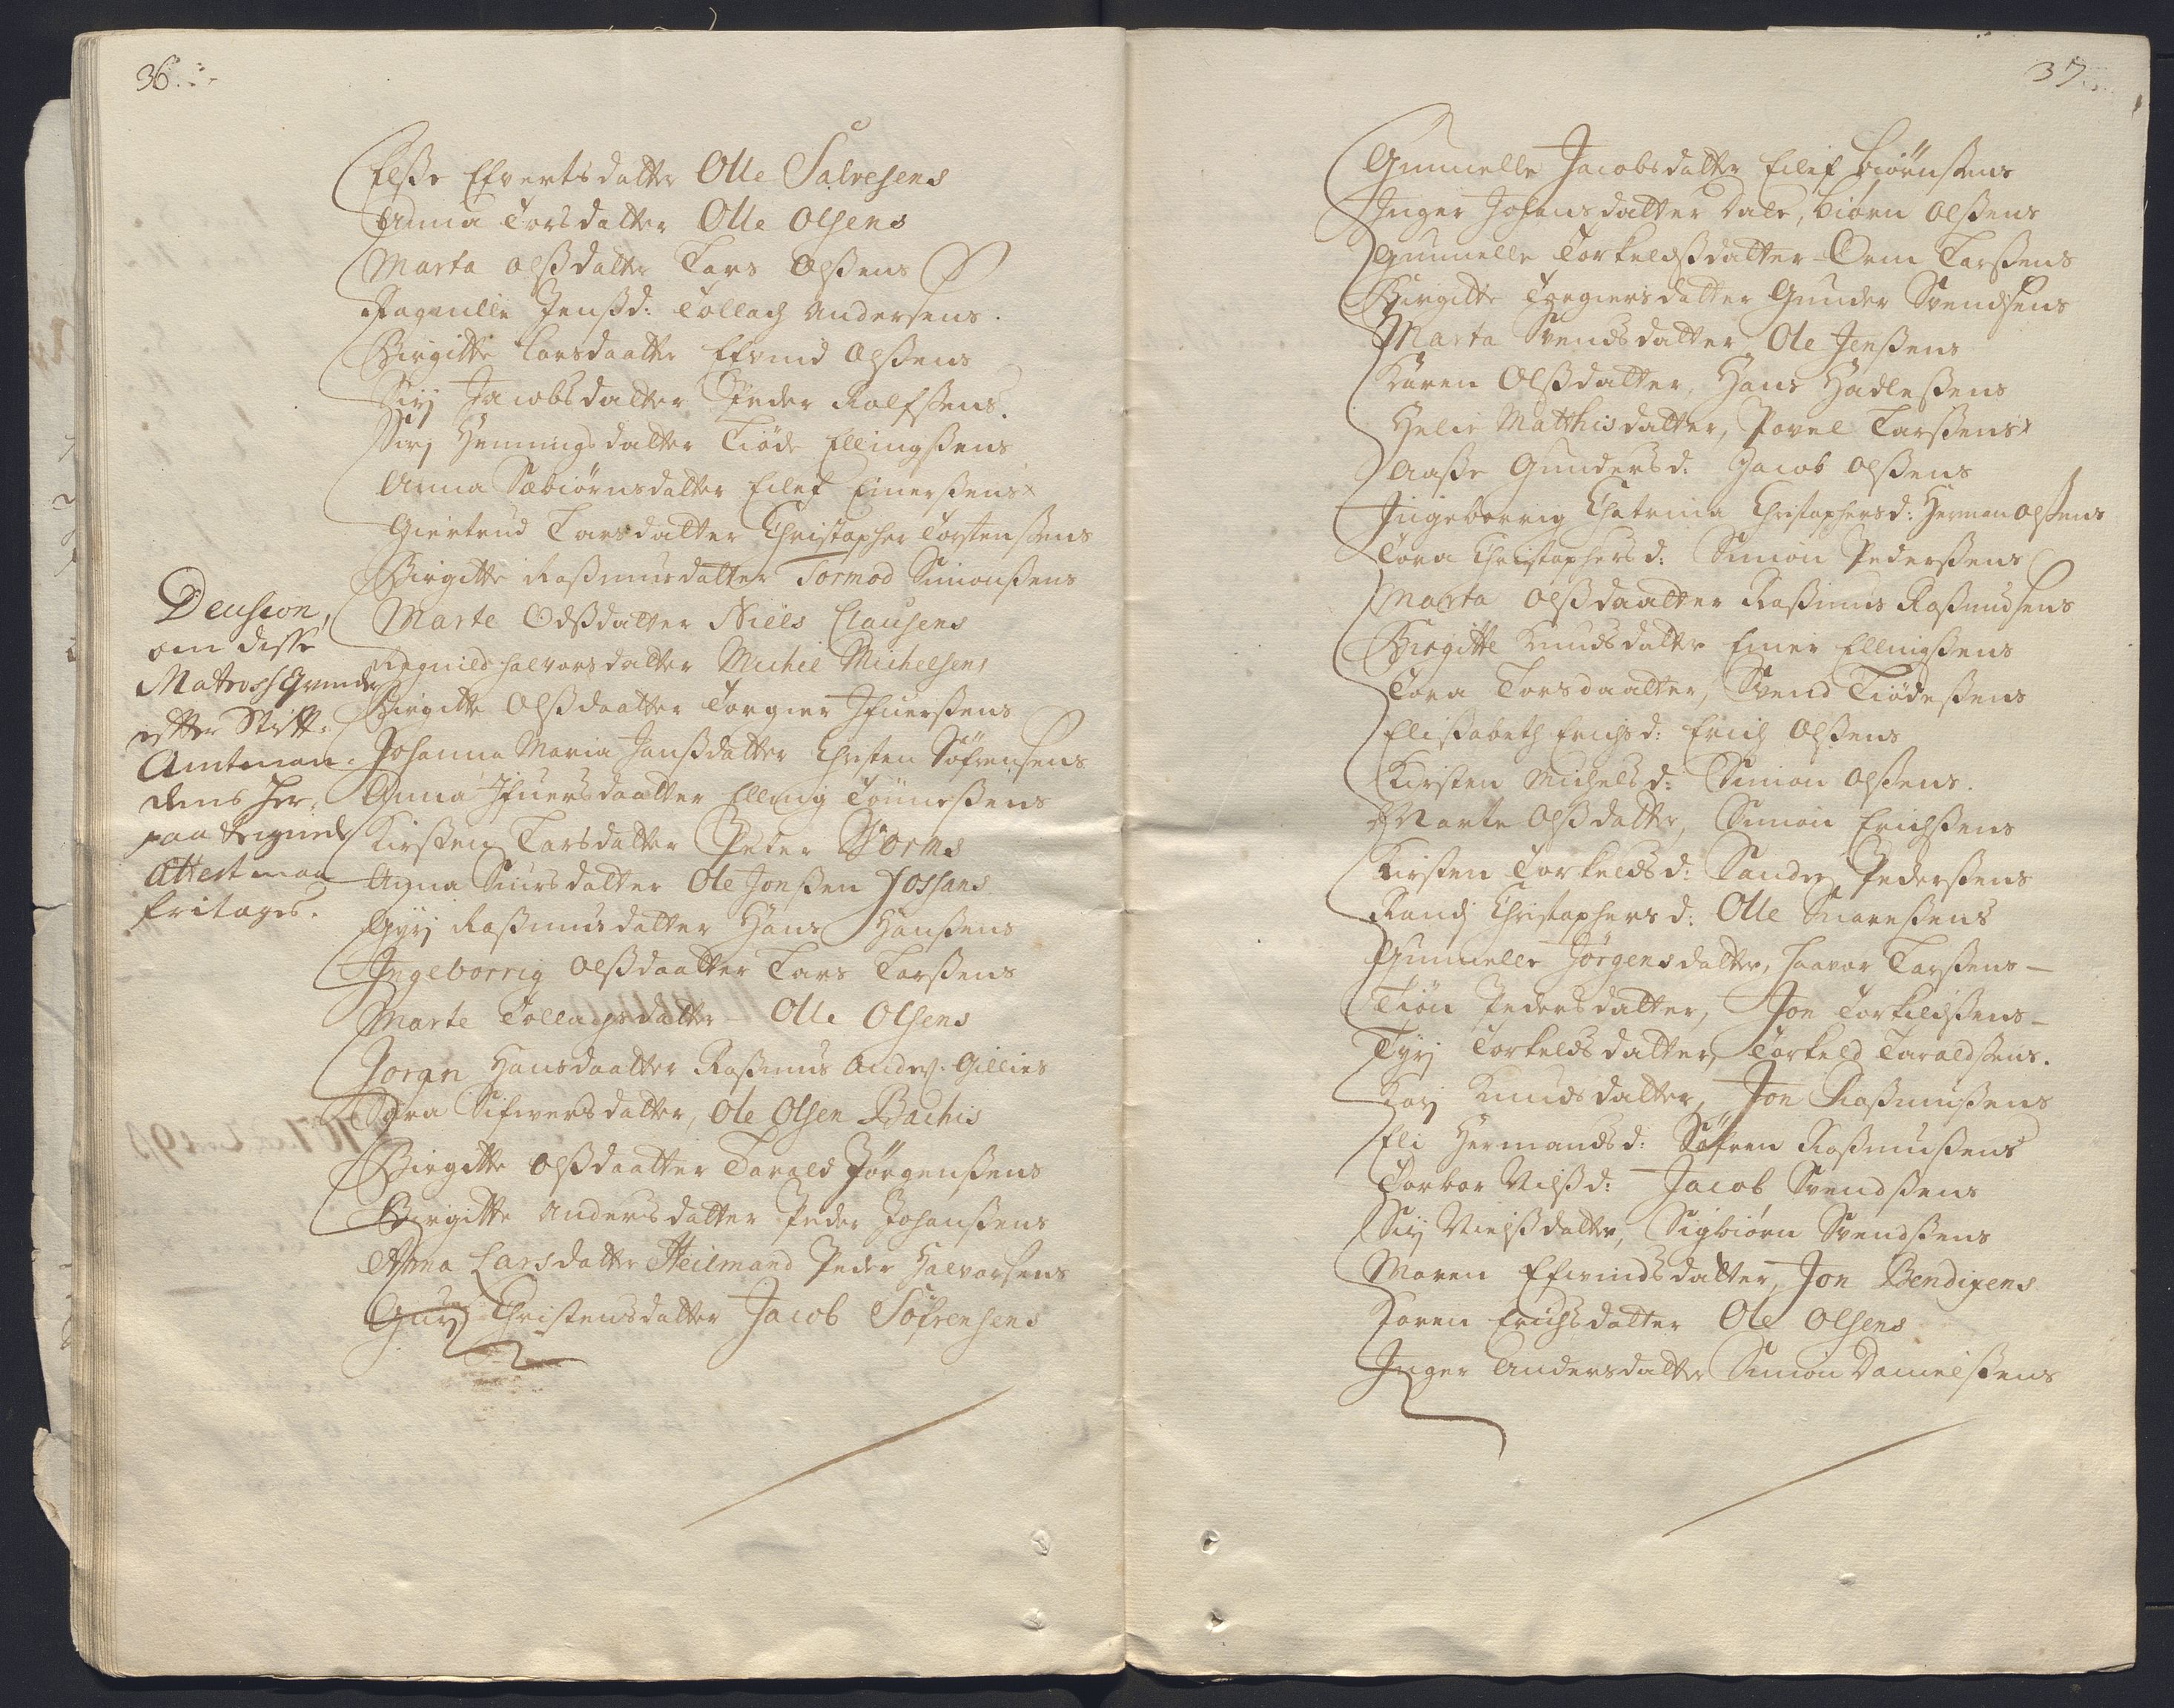 36.
Elsse Efvertsdatter Olle Salvesens
Anna Torsdatter Olle Olsens
Marta Olsdatter Lars Olssens
Ragnille Jenssd: Tollach Andersens.
Birgitte Larsdaatter Efvind Olssens
Sirj Jacobsdatter Peder Rolfssens.
Sirj Hemmingsdatter Tiöde Ellingssens
Anna Sæbiörnsdatter Eilef Einerssens
Giertrud Larsdatter Christopher Torstenssens
Birgitte Rassmusdatter Tormod Simonssens
Marte Odssdatter Niels Clausens
Ragnild Halvorsdatter Michel Michelsens
Birgitte Olssdaatter Torgier Ifuerssens
Johanna Maria Janssdatter Christen Söfrensens
Anna Ifuersdaatter Elling Tönnessens
Kirsten Larsdatter Peter Worms
Anna Siursdatter Ole Jonssen Fossans
Gyrj Rassmusdatter Hans Hanssens
Ingeborrig Olssdaatter Lars Larssens
Marte Tollachsdatter Olle Olsens
Joran Hansdaatter Rassmus Anders: Gillies
Tora Sifversdatter, Ole Olsen Bachis
Birgitte Olssdaatter Tarald Jörgenssens
Birgitte Andersdatter Peder Johanssens
Anna Larsdatter Heilmand Peder Halvorsens
Gurj Christensdatter Jacob Söfrensens
Decision,
om disse
Matross qvinder
efter Stift-
Amtman-
dens her-
paa tegnede
Attest maa
fritages.
37.
Gunnelle Jacobsdatter Eilif Biörnssens
Inger Johansdatter Dale, Biörn Olssens
Gunnelle Torkeldssdatter Orm Larssens
Birgitte Torgiersdatter Gunder Svendsens
Marta Svendsdatter, Ole Jenssens
Karen Olssdatter, Hans Hadlessens
Helie Matthisdatter, Povel Larssens
Aasse Gundersd: Jacob Olssens
Ingeborrig Chatrina Christophersd: Herman Olssens
Tora Christophersd: Simon Pederssens
Marta Olssdaatter Rassmus Rassmudsens
Birgitte Knudsdatter Einer Ellingssens
Tora Torsdaatter, Svend Tiödessens
Elissabeth Erichsd: Erich Olssens
Kirsten Michelsd: Simon Olssens.
Marte Olssdatter, Simon Erichssens
Kirsten Torkeldsd: Sander Pederssens
Randj Christophersd: Olle Snaressens
Gunnelle Jörgensdatter, Haavor Larssens
Siön Pedersdatter, Jon Torkildssens
Tyrj Torkeldsdatter, Torkeld Taraldssens.
Karj Knudsdatter, Jon Rassmussens
Eli Hermandsd: Söfren Rassmussens
Torbor Nilssd: Jacob Svendssens
Sirj Nielssdatter, Sigbiörn Svendssens
Maren Efvindsdatter, Jon Bendixens
Karen Erichsdatter Ole Olsens
Inger Andersdatter Simon Danielssens